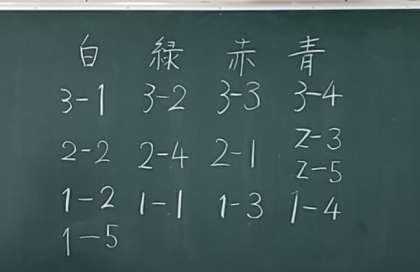 白 緑 赤 青
3-1 3-2 3-3 3-4
2-2 2-4 2-1 2-3
2-5
1-2 1-1 1-3 1-4
1-5